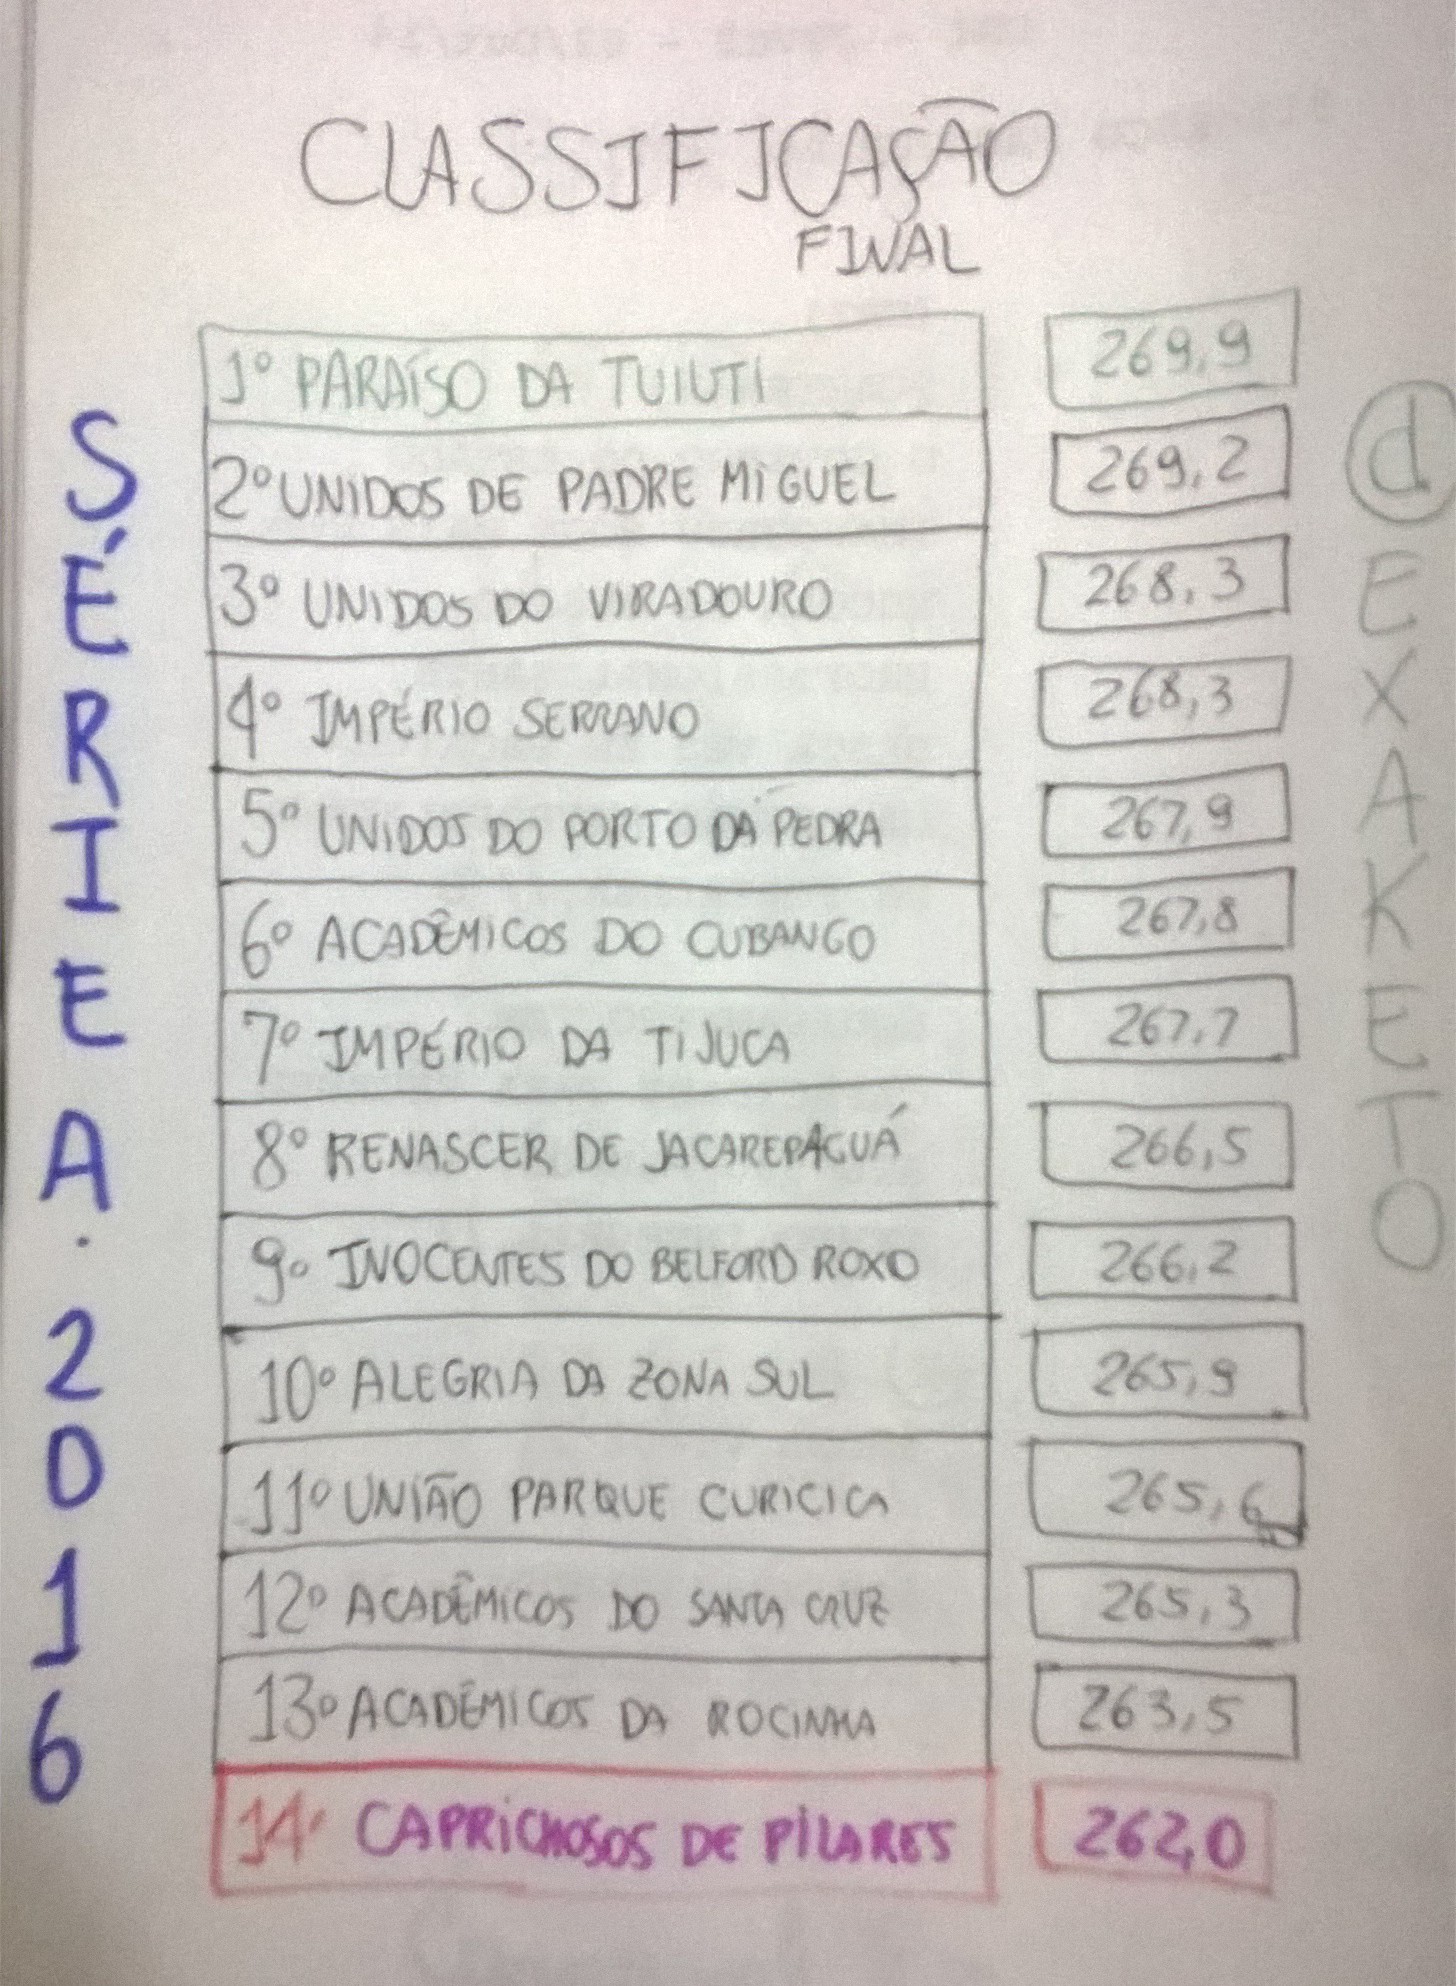 CLASSIFICAÇÃO
FINAL
1º PARAÍSO DA TUIUTI 269,9
2º UNIDOS DE PADRE MIGUEL 269,2
3º UNIDOS DO VIRADOURO 268,3
4º IMPÉRIO SERRANO 268,3
5º UNIDOS DO PORTO DA PEDRA 267,9
6º ACADÊMICOS DO CUBANGO 267,8
7º IMPÉRIO DA TIJUCA 267,7
8º RENASCER DE JACAREPAGUÁ 266,5
9º INOCENTES DO BELFORD ROXO 266,2
10º ALEGRIA DA ZONA SUL 265,9
11º UNIÃO PARQUE CURICICA 265,6
12º ACADÊMICOS DO SANTA CRUZ 265,3
13º ACADÊMICOS DA ROCINHA 263,5
14º CAPRICHOSOS DE PILARES 262,0
SÉRIE A . 2016
ⓓ EXAKETO